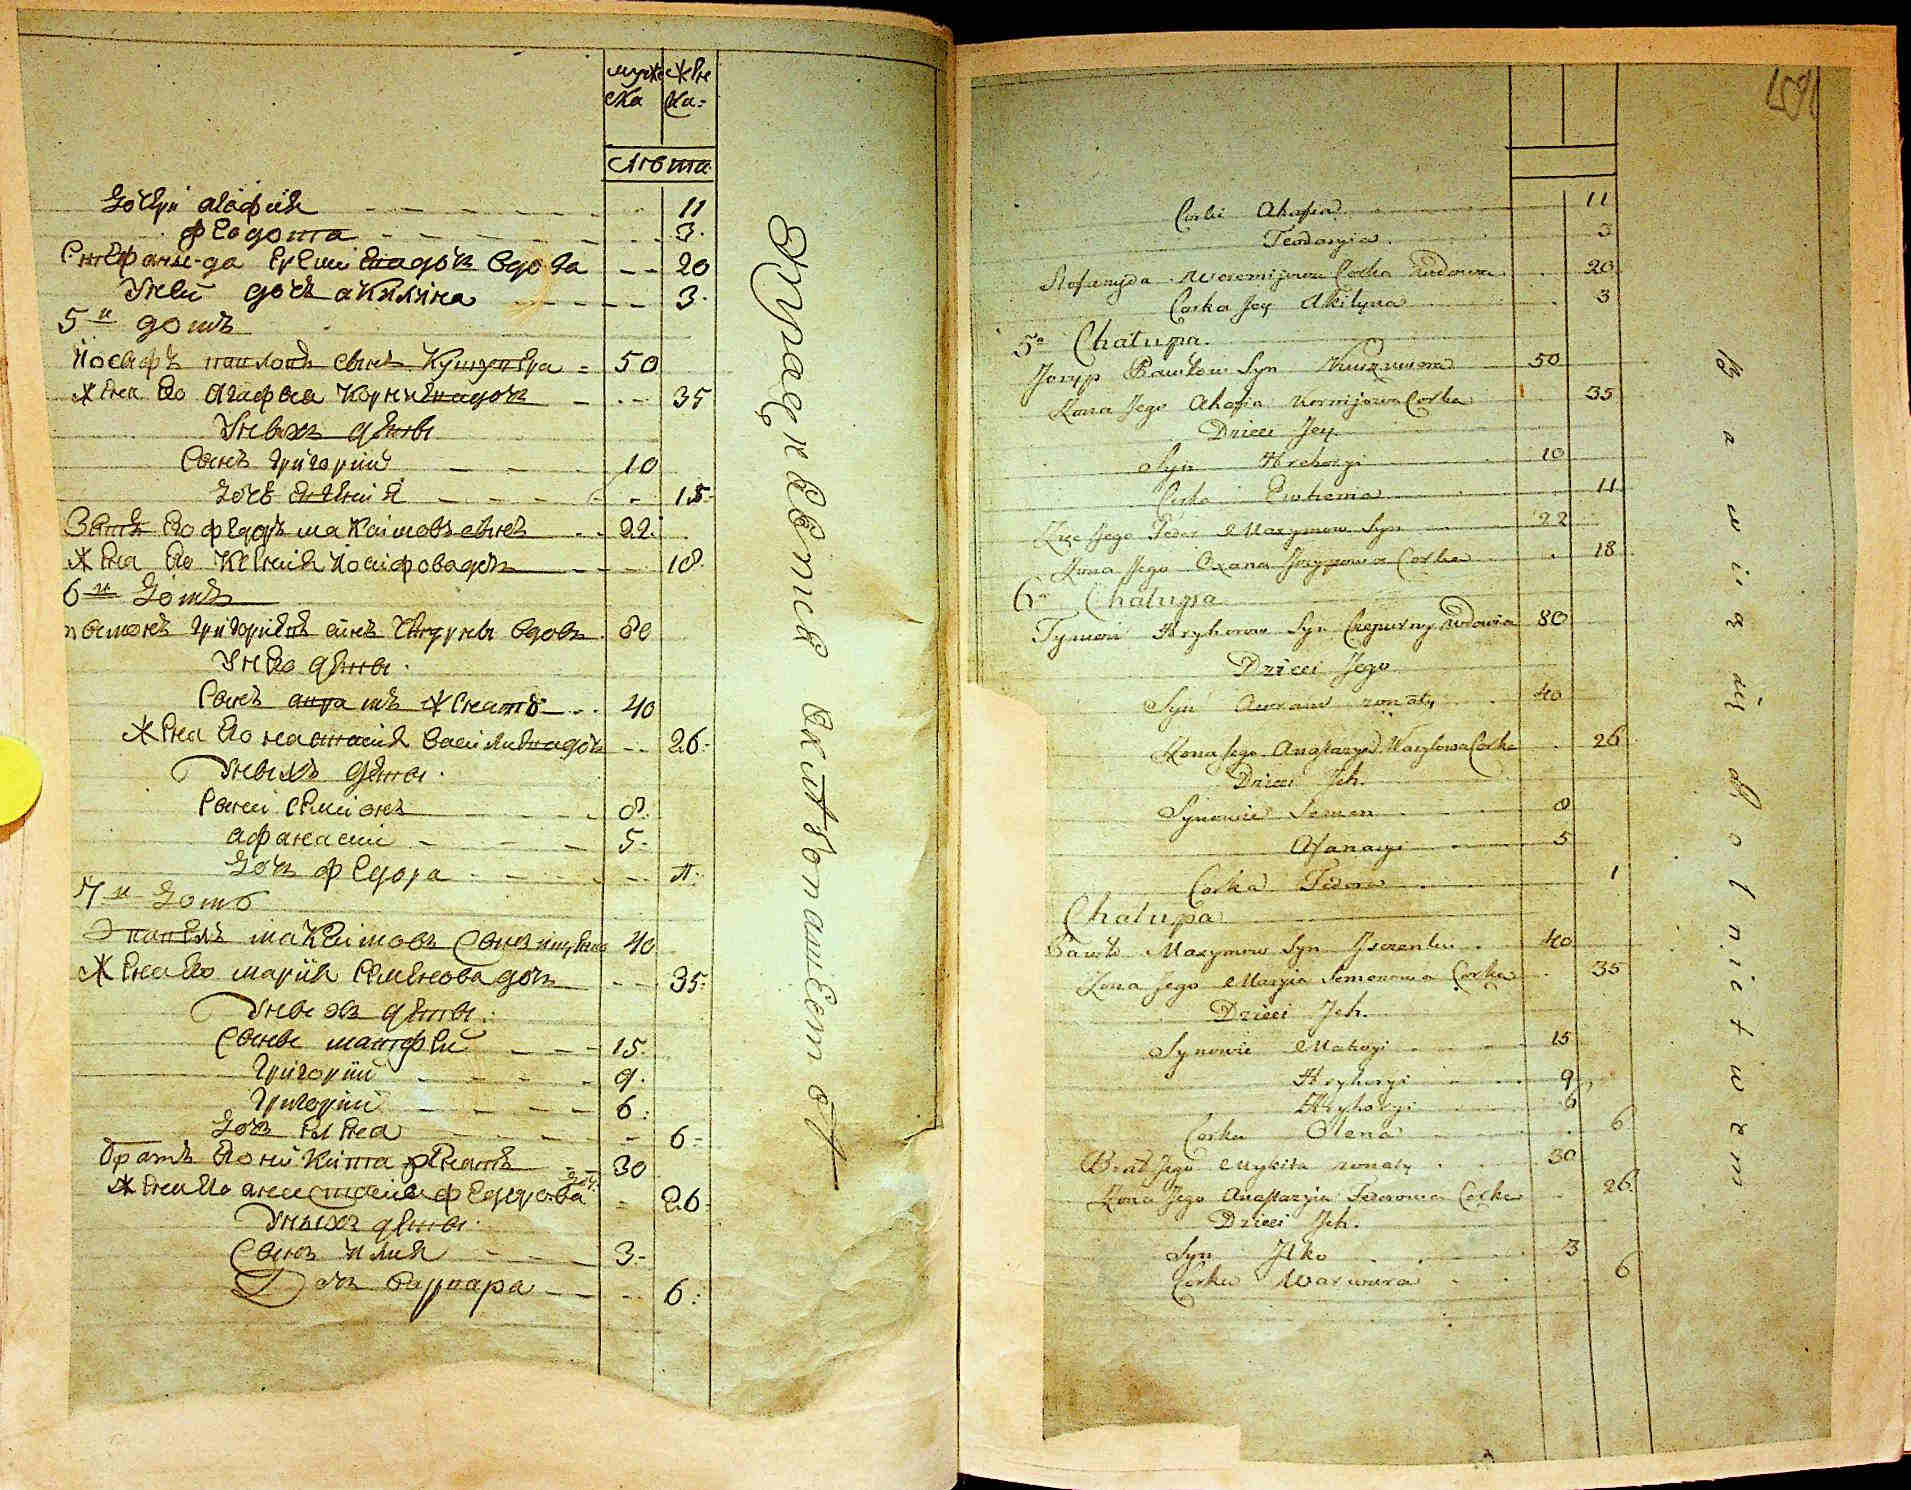 мужеска женска
лѣта
дочери агафия - - - 11
федота - - - 3
Стефанида еремиева дочь вдова - - 20
У ней дочь акилина - - - 3
5й домъ
Иосифъ павловъ сынъ = 50
жена его агафиа корниева дочь - - 35
У нихъ дѣти
Сынъ григорий - - - 10
дочь евгения - - - 18
Зять его федоръ максимовъ сынъ - - 22
жена его ксения иосифова дочь - - - 18
6й домъ
григориевъ сынъ вдовъ 80
У него дѣти
Сынъ женатъ - - 40
жена его настасия василиева дочь - - 26
У нихъ дѣти
Сыни симионъ - - 8
афанасий - - - 5
дочь федора - - - 1
7й домъ
максимовъ сынъ 40
жена его мария семенова дочь - - 35
У нихъ дѣти
Сыны матфей - - - 15
григорий - - - 9
григорий - - - 6
дочь елена - - - 6
братъ его никита женатъ - 30
жена его анастасия федорова доч. - 26
У нихъ дѣти
Сынъ илия - - 3
Дочь варвара - - - 6
Упражняется
159
Corki Ahafia 11
Teodozyia 3
Stefanyda Weremijowa Corka Wdowa 20
Corka Jey Akilyna 3
5a Chałupa
Jozyp Pawłow Syn 50
Żona Jego Ahafia Kornijowa Corka 35
Dzieci Jey
Syn Hrehoryi 10
Corka Ewhenia 11
Zięć Jego Fedor Maxymow Syn 22
Żona Jego Oxana Jozypowa Corka 18
6a Chałupa
Tymosz Hryhorow Syn Czepurny Wdowiec 80
Dzieci Jego
Syn Awram żonaty 40
Żona Jego Anastazya Wasylowa Corka 26
Dzieci Ich.
Synowie Semen 8
Afanazyi 5
Corka Fedora 1
Chałupa
Pawło Maxymow Syn 40
Żona Jego Maryia Semenowa Corka 35
Dzieci Ich.
Synowie Matwyi 15
Hryhoryi 9
Hryhoryi 6
Corka Olena 6
Brat Jego Mykita żonaty 30
Żona Jego Anastazyia Fedorowa Corka 26
Dzieci Ich.
Syn Ilko 3
Corka Warwara 6
Bawią się Rolnictwem